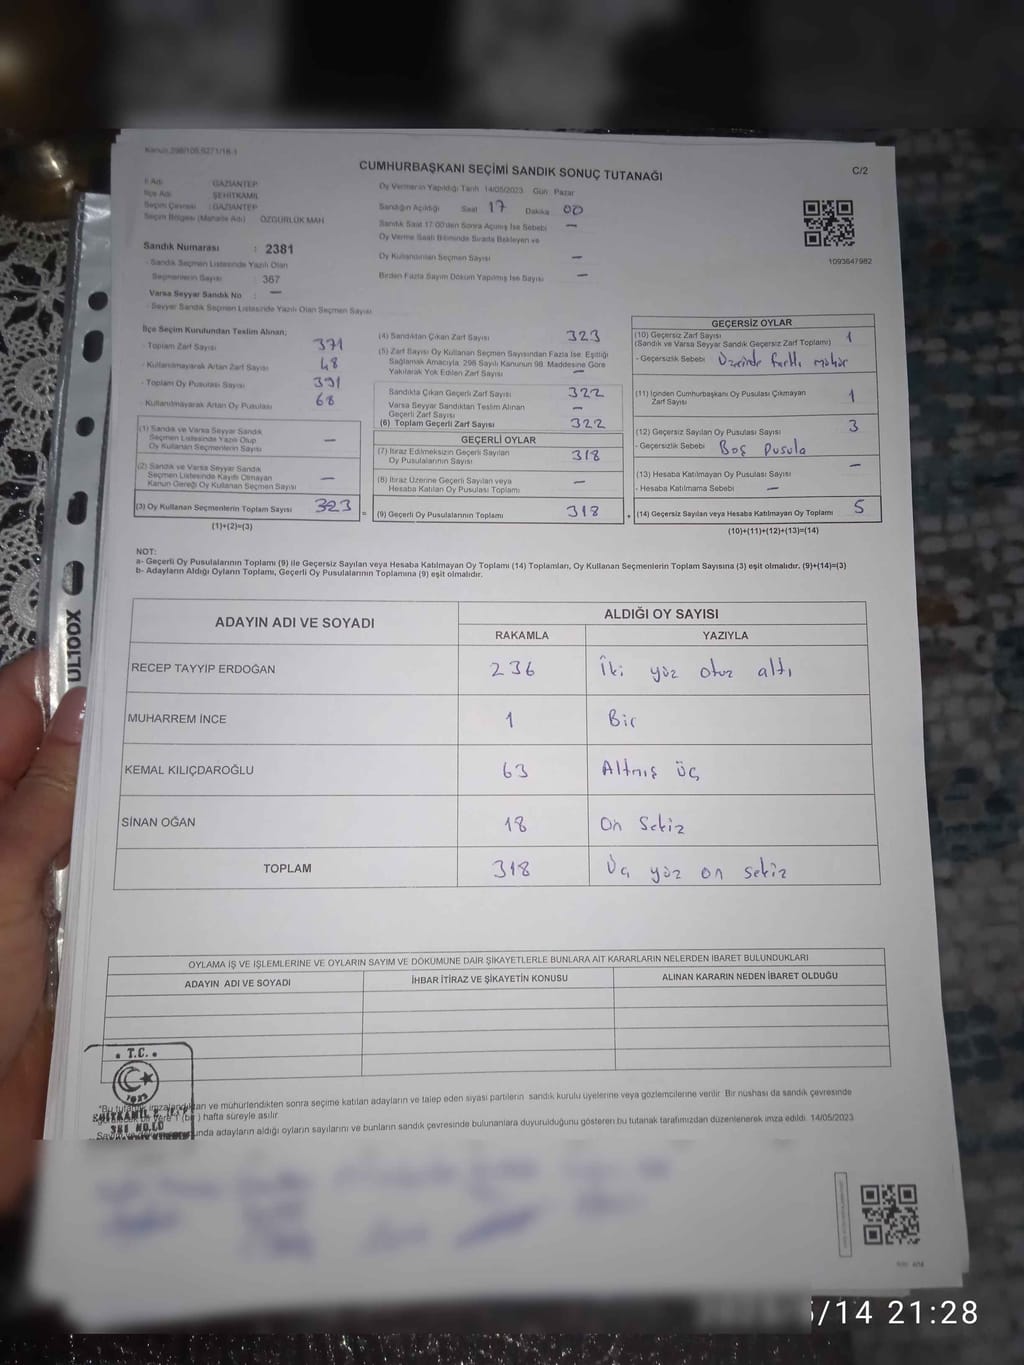 Kanun:298/105,6271/16-1
CUMHURBAŞKANI SEÇİMİ SANDIK SONUÇ TUTANAĞI
C/2
İl Adı : GAZİANTEP
İlçe Adı : ŞEHİTKAMİL
Seçim Çevresi : GAZİANTEP
Seçim Bölgesi (Mahalle Adı) : ÖZGÜRLÜK MAH
Sandık Numarası : 2381
- Sandık Seçmen Listesinde Yazılı Olan
Seçmenlerin Sayısı : 367
Varsa Seyyar Sandık No : —
- Seyyar Sandık Seçmen Listesinde Yazılı Olan Seçmen Sayısı
Oy Vermenin Yapıldığı Tarih 14/05/2023 Gün Pazar
Sandığın Açıldığı Saat 17 Dakika 00
Sandık Saat 17:00'den Sonra Açılmış İse Sebebi —
Oy Verme Saati Bitiminde Sırada Bekleyen ve
Oy Kullandırılan Seçmen Sayısı —
Birden Fazla Sayım Döküm Yapılmış İse Sayısı —
1093647982
İlçe Seçim Kurulundan Teslim Alınan;
- Toplam Zarf Sayısı 371
- Kullanılmayarak Artan Zarf Sayısı 48
- Toplam Oy Pusulası Sayısı 391
- Kullanılmayarak Artan Oy Pusulası 68
(1) Sandık ve Varsa Seyyar Sandık
Seçmen Listesinde Yazılı Olup
Oy Kullanan Seçmenlerin Sayısı —
(2) Sandık ve Varsa Seyyar Sandık
Seçmen Listesinde Kayıtlı Olmayan
Kanun Gereği Oy Kullanan Seçmen Sayısı —
(3) Oy Kullanan Seçmenlerin Toplam Sayısı 323
(1)+(2)=(3)
(4) Sandıktan Çıkan Zarf Sayısı 323
(5) Zarf Sayısı Oy Kullanan Seçmen Sayısından Fazla İse, Eşitliği
Sağlamak Amacıyla, 298 Sayılı Kanunun 98. Maddesine Göre
Yakılarak Yok Edilen Zarf Sayısı —
Sandıkta Çıkan Geçerli Zarf Sayısı 322
Varsa Seyyar Sandıktan Teslim Alınan
Geçerli Zarf Sayısı —
(6) Toplam Geçerli Zarf Sayısı 322
GEÇERLİ OYLAR
(7) İtiraz Edilmeksizin Geçerli Sayılan
Oy Pusulalarının Sayısı 318
(8) İtiraz Üzerine Geçerli Sayılan veya
Hesaba Katılan Oy Pusulası Toplamı —
= (9) Geçerli Oy Pusulalarının Toplamı 318
GEÇERSİZ OYLAR
(10) Geçersiz Zarf Sayısı
(Sandık ve Varsa Seyyar Sandık Geçersiz Zarf Toplamı) 1
- Geçersizlik Sebebi Üzerinde farklı mühür
(11) İçinden Cumhurbaşkanı Oy Pusulası Çıkmayan
Zarf Sayısı 1
(12) Geçersiz Sayılan Oy Pusulası Sayısı 3
- Geçersizlik Sebebi Boş Pusula
(13) Hesaba Katılmayan Oy Pusulası Sayısı —
- Hesaba Katılmama Sebebi —
+ (14) Geçersiz Sayılan veya Hesaba Katılmayan Oy Toplamı 5
(10)+(11)+(12)+(13)=(14)
NOT:
a- Geçerli Oy Pusulalarının Toplamı (9) ile Geçersiz Sayılan veya Hesaba Katılmayan Oy Toplamı (14) Toplamları, Oy Kullanan Seçmenlerin Toplam Sayısına (3) eşit olmalıdır. (9)+(14)=(3)
b- Adayların Aldığı Oyların Toplamı, Geçerli Oy Pusulalarının Toplamına (9) eşit olmalıdır.
ADAYIN ADI VE SOYADI
ALDIĞI OY SAYISI
RAKAMLA YAZIYLA
RECEP TAYYİP ERDOĞAN 236 İki yüz otuz altı
MUHARREM İNCE 1 Bir
KEMAL KILIÇDAROĞLU 63 Altmış üç
SİNAN OĞAN 18 On Sekiz
TOPLAM 318 Üç yüz on sekiz
OYLAMA İŞ VE İŞLEMLERİNE VE OYLARIN SAYIM VE DÖKÜMÜNE DAİR ŞİKAYETLERLE BUNLARA AİT KARARLARIN NELERDEN İBARET BULUNDUKLARI
ADAYIN ADI VE SOYADI İHBAR İTİRAZ VE ŞİKAYETİN KONUSU ALINAN KARARIN NEDEN İBARET OLDUĞU
T.C.
1923
381 NO.LU
*Bu tutanak imzalandıktan ve mühürlendikten sonra seçime katılan adayların ve talep eden siyasi partilerin sandık kurulu üyelerine veya gözlemcilerine verilir. Bir nüshası da sandık çevresinde
1 (bir) hafta süreyle asılır.
unda adayların aldığı oyların sayılarını ve bunların sandık çevresinde bulunanlara duyurulduğunu gösteren bu tutanak tarafımızdan düzenlenerek imza edildi. 14/05/2023
UL100X
/14 21:28